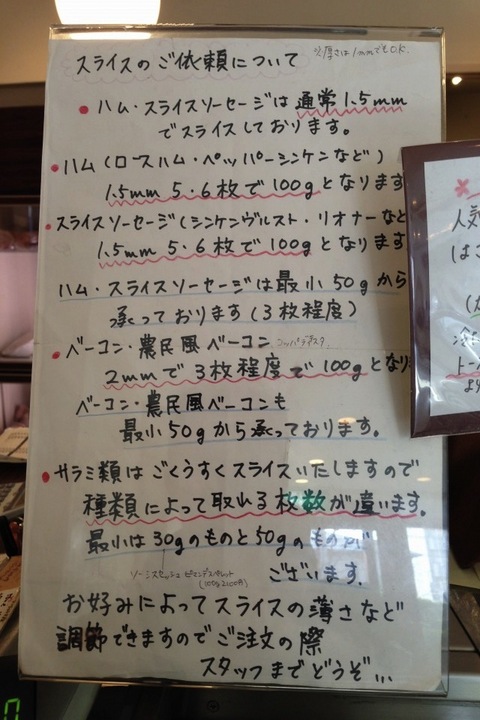 スライスのご依頼について
※厚さは1mmでもOK.
● ハム・スライスソーセージは通常1.5mm
でスライスしております。
● ハム(ロースハム・ペッパーシンケンなど)
1.5mm 5・6枚で100gとなります
● スライスソーセージ(シンケンヴルスト・リオナーなど
1.5mm 5・6枚で100gとなります
ハム・スライスソーセージは最小50gから
承っております(3枚程度)
● ベーコン・農民風ベーコン コッパディテスタ
2mmで3枚程度で100gとなり
ベーコン・農民風ベーコンも
最小50gから承っております。
● サラミ類はごくうすくスライスいたしますので
種類によって取れる枚数が違います。
最小は30gのものと50gのものが
ございます。
(100g2100円)
お好みによってスライスの薄さなど
調節できますのでご注文の際
スタッフまでどうぞ...
人気
(はこ
冷
0